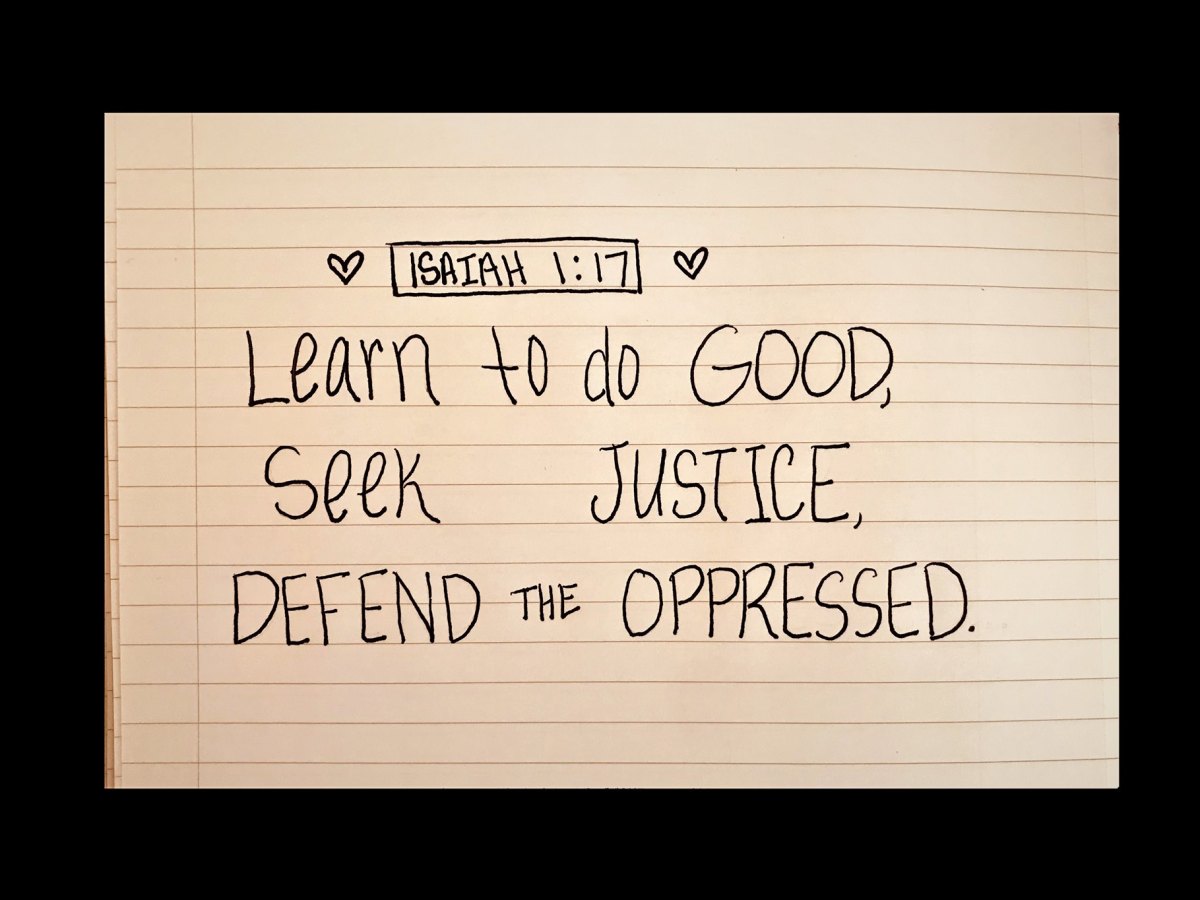 ISAIAH 1:17
Learn to do GOOD,
Seek JUSTICE,
DEFEND THE OPPRESSED.